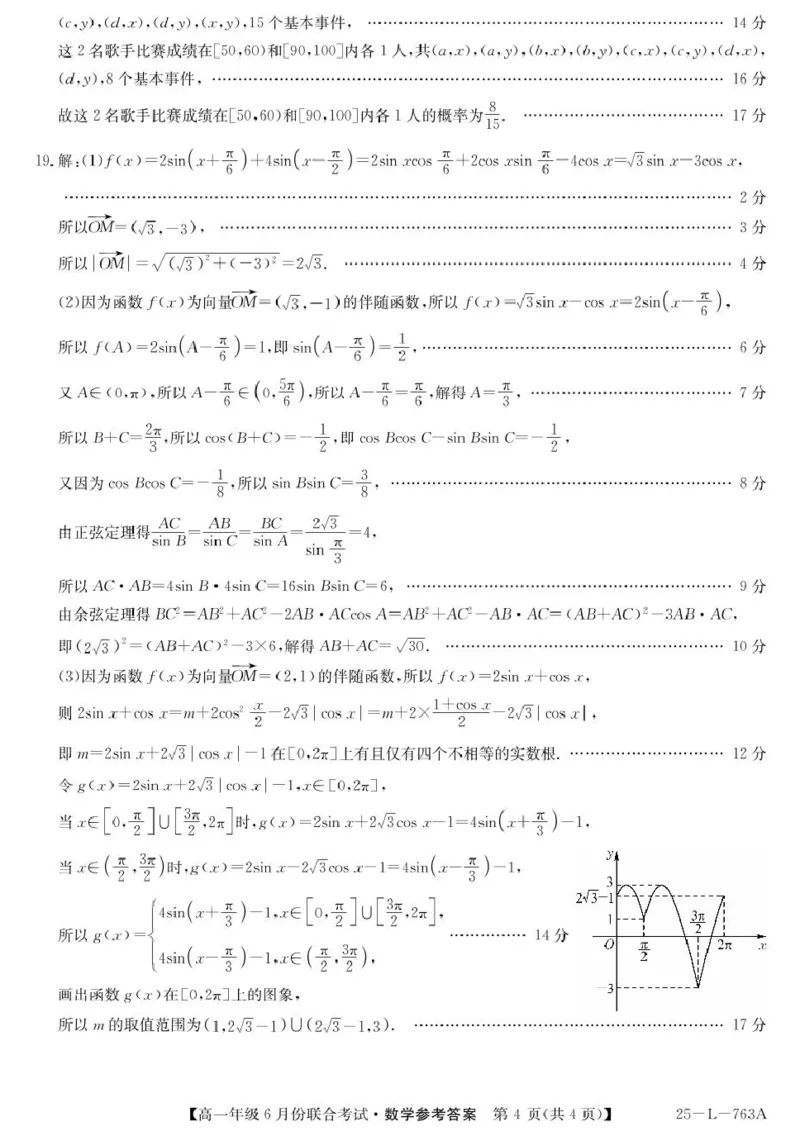 (c,y),(d,x),(d,y),(x,y),15个基本事件, …… 14分
这2名歌手比赛成绩在[50,60)和[90,100]内各1人,共(a,x),(a,y),(b,x),(b,y),(c,x),(c,y),(d,x),
(d,y),8个基本事件, …… 16分
故这2名歌手比赛成绩在[50,60)和[90,100]内各1人的概率为8/15. …… 17分
19.解:(1)f(x)=2sin(x+π/6)+4sin(x-π/2)=2sin xcos π/6+2cos xsin π/6-4cos x=√3sin x-3cos x,
…… 2分
所以OM→=(√3,-3), …… 3分
所以|OM→|=√((√3)²+(-3)²)=2√3. …… 4分
(2)因为函数f(x)为向量OM→=(√3,-1)的伴随函数,所以f(x)=√3sin x-cos x=2sin(x-π/6),
所以f(A)=2sin(A-π/6)=1,即sin(A-π/6)=1/2, …… 6分
又A∈(0,π),所以A-π/6∈(0,5π/6),所以A-π/6=π/6,解得A=π/3, …… 7分
所以B+C=2π/3,所以cos(B+C)=-1/2,即cos Bcos C-sin Bsin C=-1/2,
又因为cos Bcos C=-1/8,所以sin Bsin C=3/8, …… 8分
由正弦定理得AC/sin B=AB/sin C=BC/sin A=2√3/sin π/3=4,
所以AC·AB=4sin B·4sin C=16sin Bsin C=6, …… 9分
由余弦定理得BC²=AB²+AC²-2AB·ACcos A=AB²+AC²-AB·AC=(AB+AC)²-3AB·AC,
即(2√3)²=(AB+AC)²-3×6,解得AB+AC=√30. …… 10分
(3)因为函数f(x)为向量OM→=(2,1)的伴随函数,所以f(x)=2sin x+cos x,
则2sin x+cos x=m+2cos² x/2-2√3|cos x|=m+2×(1+cos x)/2-2√3|cos x|,
即m=2sin x+2√3|cos x|-1在[0,2π]上有且仅有四个不相等的实数根. …… 12分
令g(x)=2sin x+2√3|cos x|-1,x∈[0,2π],
当x∈[0,π/2]∪[3π/2,2π]时,g(x)=2sin x+2√3cos x-1=4sin(x+π/3)-1,
当x∈(π/2,3π/2)时,g(x)=2sin x-2√3cos x-1=4sin(x-π/3)-1,
所以g(x)={4sin(x+π/3)-1,x∈[0,π/2]∪[3π/2,2π],
4sin(x-π/3)-1,x∈(π/2,3π/2), …… 14分
y
3
2√3-1
1
O
π/2
3π/2
2π
x
-3
画出函数g(x)在[0,2π]上的图象,
所以m的取值范围为(1,2√3-1)∪(2√3-1,3). …… 17分
【高一年级6月份联合考试·数学参考答案 第4页(共4页)】 25-L-763A